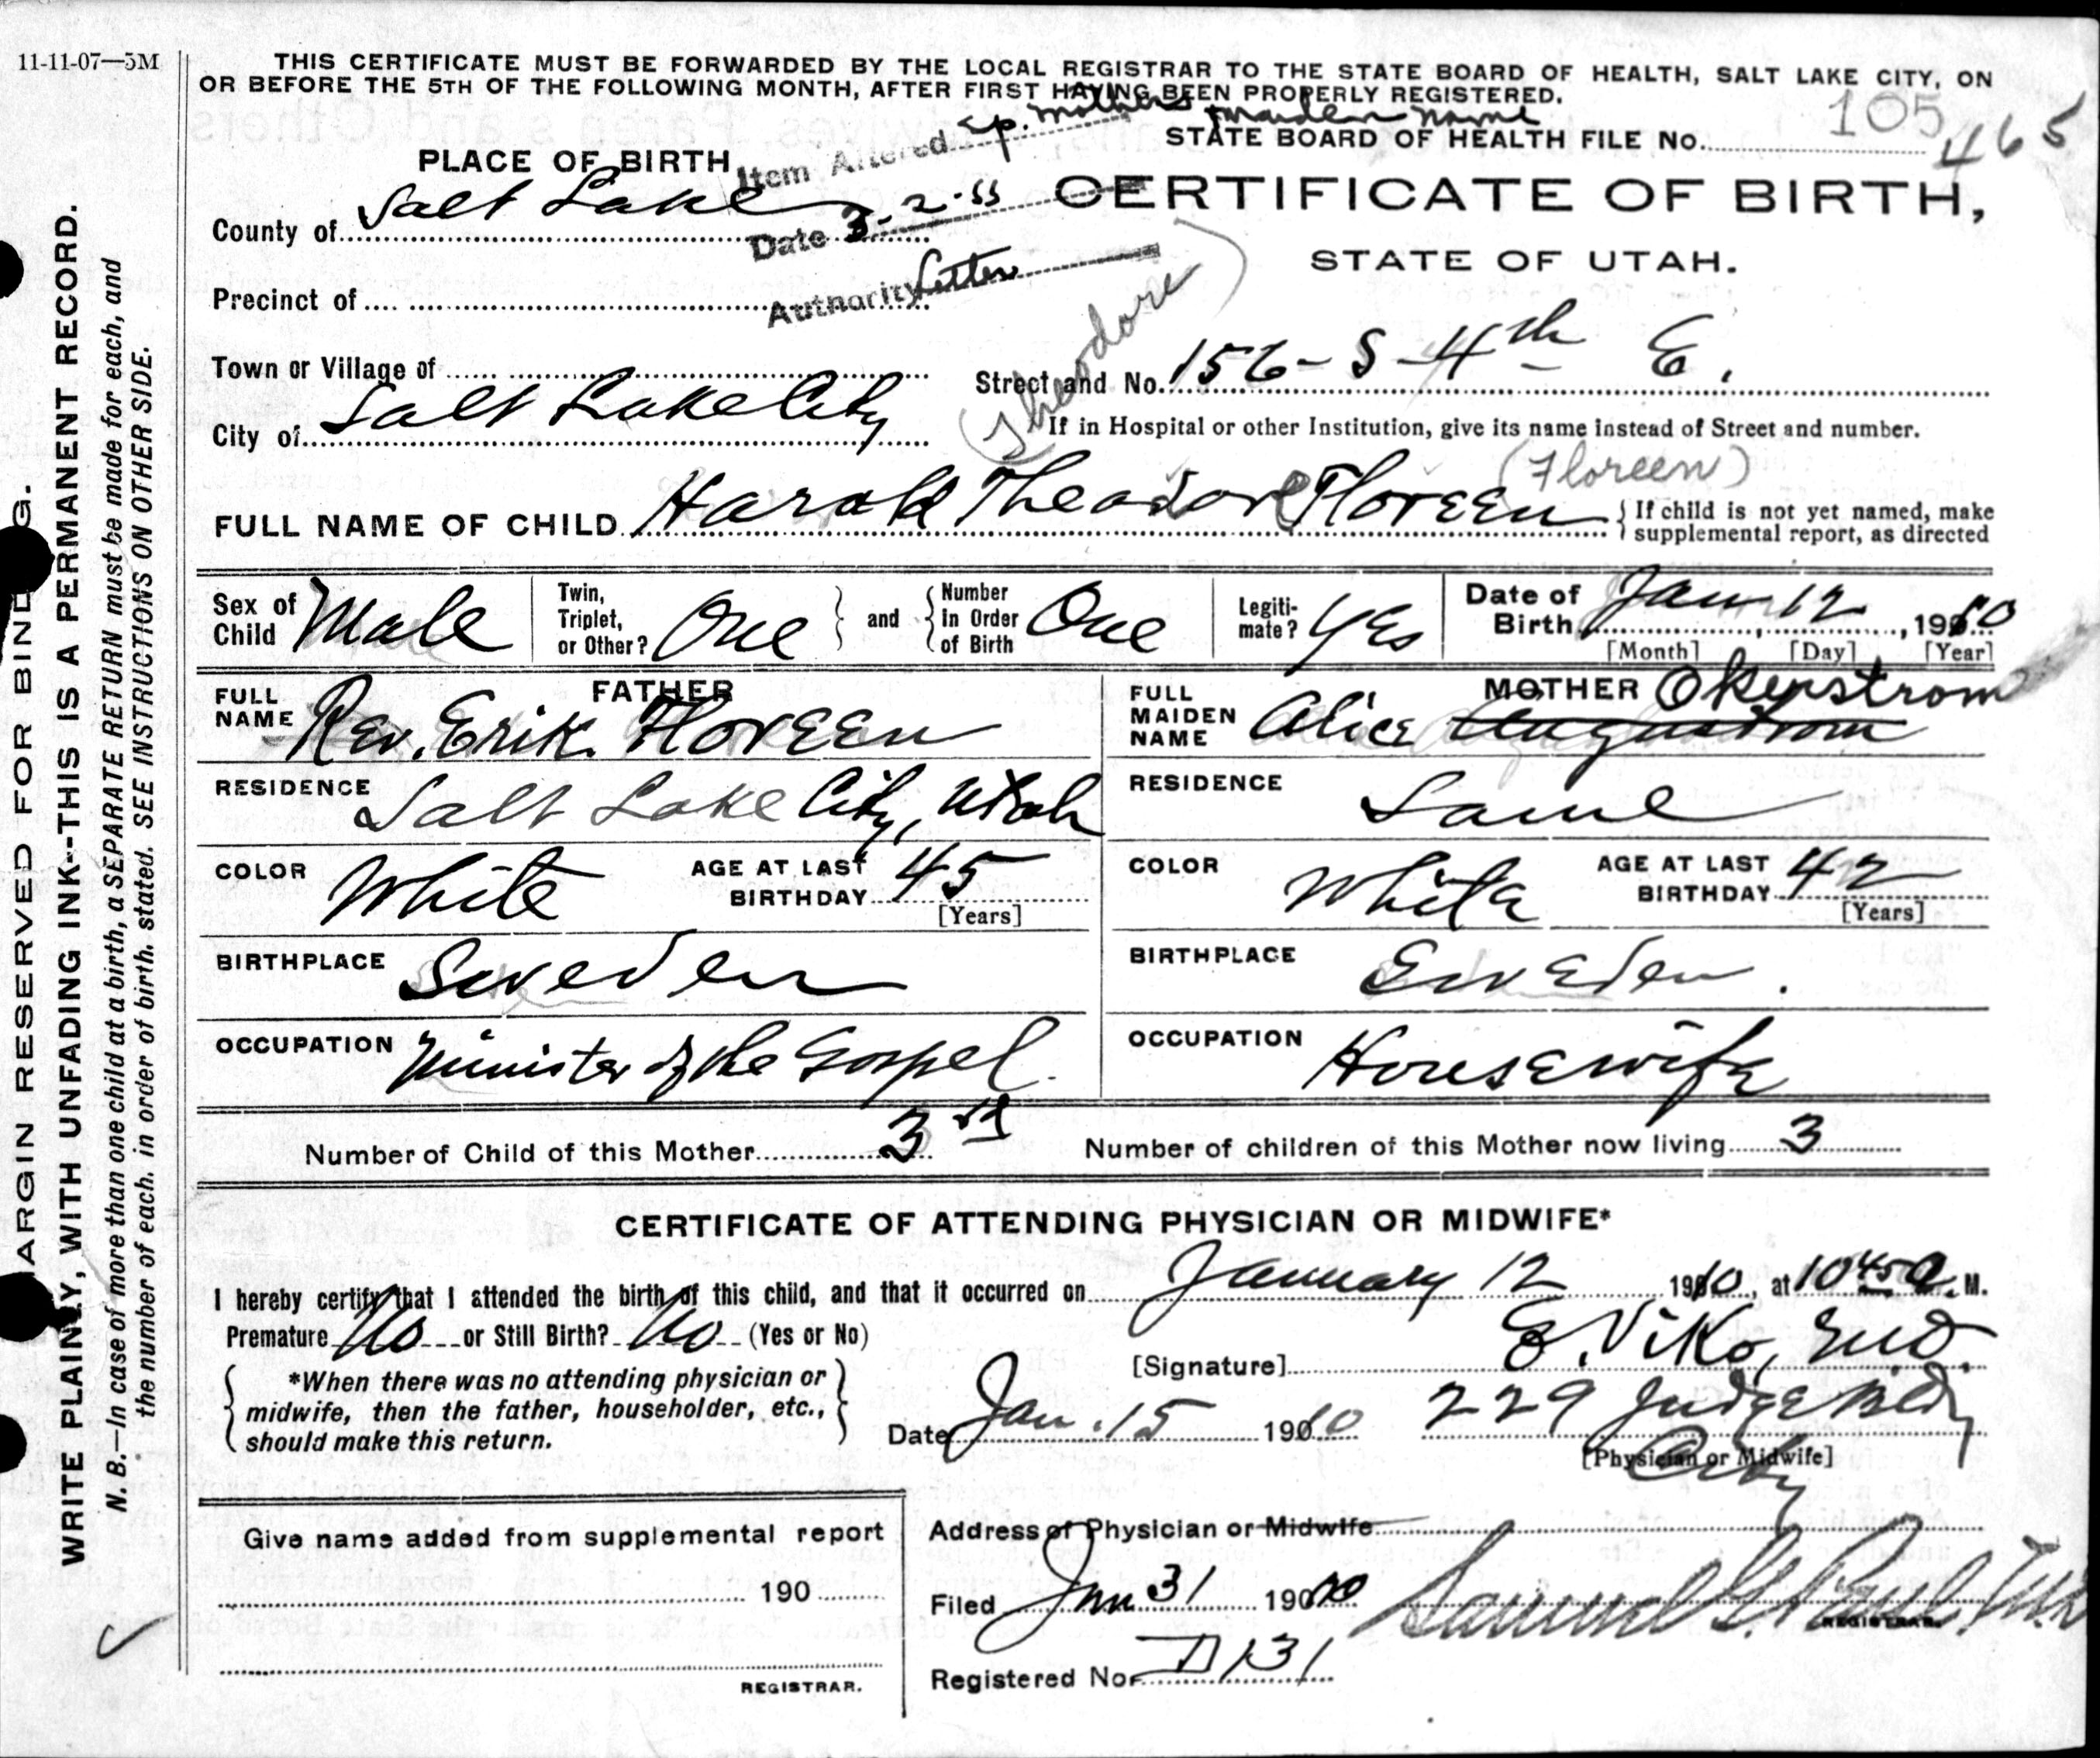 11-11-07—5M
THIS CERTIFICATE MUST BE FORWARDED BY THE LOCAL REGISTRAR TO THE STATE BOARD OF HEALTH, SALT LAKE CITY, ON
OR BEFORE THE 5TH OF THE FOLLOWING MONTH, AFTER FIRST HAVING BEEN PROPERLY REGISTERED.
Item Altered sp. mothers maiden name
Date 3-2-55
Authority Letter
STATE BOARD OF HEALTH FILE No. 105
465
PLACE OF BIRTH
CERTIFICATE OF BIRTH,
STATE OF UTAH.
County of Salt Lake
Precinct of
Town or Village of
City of Salt Lake City
Street and No. 156-S-4th E.
If in Hospital or other Institution, give its name instead of Street and number.
(Theodore)
(Floreen)
FULL NAME OF CHILD Harold Theodore Floreen
If child is not yet named, make
supplemental report, as directed
Sex of Child Male
Twin, Triplet, or Other? One and Number in Order of Birth One
Legiti-mate? Yes
Date of Birth Jan 12, 1910
[Month] [Day] [Year]
FATHER
FULL NAME Rev. Erik Floreen
RESIDENCE Salt Lake City, Utah
COLOR White AGE AT LAST BIRTHDAY 45
[Years]
BIRTHPLACE Sweden
OCCUPATION Minister of the Gospel
MOTHER
FULL MAIDEN NAME Alice Augustrom Okerstrom
RESIDENCE Same
COLOR White AGE AT LAST BIRTHDAY 42
[Years]
BIRTHPLACE Sweden.
OCCUPATION Housewife
Number of Child of this Mother 3rd Number of children of this Mother now living 3
CERTIFICATE OF ATTENDING PHYSICIAN OR MIDWIFE*
I hereby certify that I attended the birth of this child, and that it occurred on January 12 1910, at 10 45 a. M.
Premature No or Still Birth? No (Yes or No)
*When there was no attending physician or
midwife, then the father, householder, etc.,
should make this return.
[Signature] E. Viko, M.D.
Date Jan. 15 1910
229 Judge Bldg
City
[Physician or Midwife]
Address of Physician or Midwife
Give name added from supplemental report
190
REGISTRAR.
Filed Jan 31 1910
Samuel G. Paul
REGISTRAR.
Registered No. D131
MARGIN RESERVED FOR BINDING.
WRITE PLAINLY, WITH UNFADING INK--THIS IS A PERMANENT RECORD.
N. B.—In case of more than one child at a birth, a SEPARATE RETURN must be made for each, and
the number of each, in order of birth, stated. SEE INSTRUCTIONS ON OTHER SIDE.